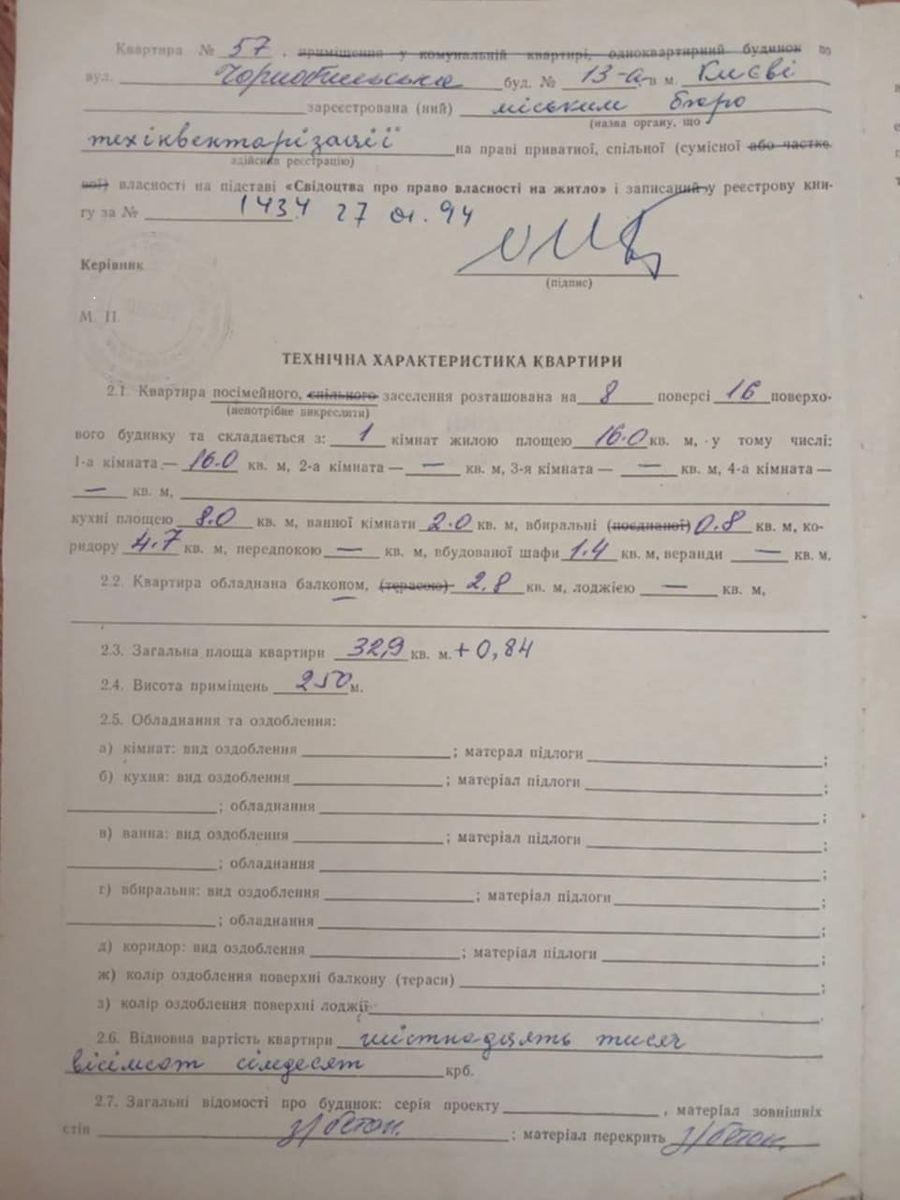 Квартира № 57, приміщення у комунальній квартирі, одноквартирний будинок по
вул. Чорнобильська буд. № 13-а в м. Києві
зареєстрована (ний) міським бюро
(назва органу, що
техінвентарізації на праві приватної, спільної (сумісної або частко
здійснив реєстрацію)
вої) власності на підставі «Свідоцтва про право власності на житло» і записаний у реєстрову кни-
гу за № 1434 27 01. 94
Керівник
(підпис)
М. П.
ТЕХНІЧНА ХАРАКТЕРИСТИКА КВАРТИРИ
2.1. Квартира посімейного, спільного заселення розташована на 8 поверсі 16 поверхо-
(непотрібне викреслити)
вого будинку та складається з: 1 кімнат жилою площею 16.0 кв. м, у тому числі:
1-а кімната — 16.0 кв. м, 2-а кімната — — кв. м, 3-я кімната — — кв. м, 4-а кімната —
— кв. м,
кухні площею 8.0 кв. м, ванної кімнати 2.0 кв. м, вбиральні (поєднаної) 0.8 кв. м, ко-
ридору 4.7 кв. м, передпокою — кв. м, вбудованої шафи 1.4 кв. м, веранди — кв. м.
2.2. Квартира обладнана балконом, (терасою) 2.8 кв. м, лоджією — кв. м,
2.3. Загальна площа квартири 32,9 кв. м. + 0,84
2.4. Висота приміщень 250 м.
2.5. Обладнання та оздоблення:
а) кімнат: вид оздоблення ; матерал підлоги ;
б) кухня: вид оздоблення ; матеріал підлоги ;
; обладнання ;
в) ванна: вид оздоблення ; матеріал підлоги ;
; обладнання ;
г) вбиральня: вид оздоблення ; матеріал підлоги ;
; обладнання ;
д) коридор: вид оздоблення ; матеріал підлоги ;
ж) колір оздоблення поверхні балкону (тераси) ;
з) колір оздоблення поверхні лоджії .
2.6. Відновна вартість квартири шістнадцять тисяч
вісімсот сімдесят крб.
2.7. Загальні відомості про будинок: серія проекту , матеріал зовнішніх
стін з/бетон. ; матеріал перекрить з/бетон.